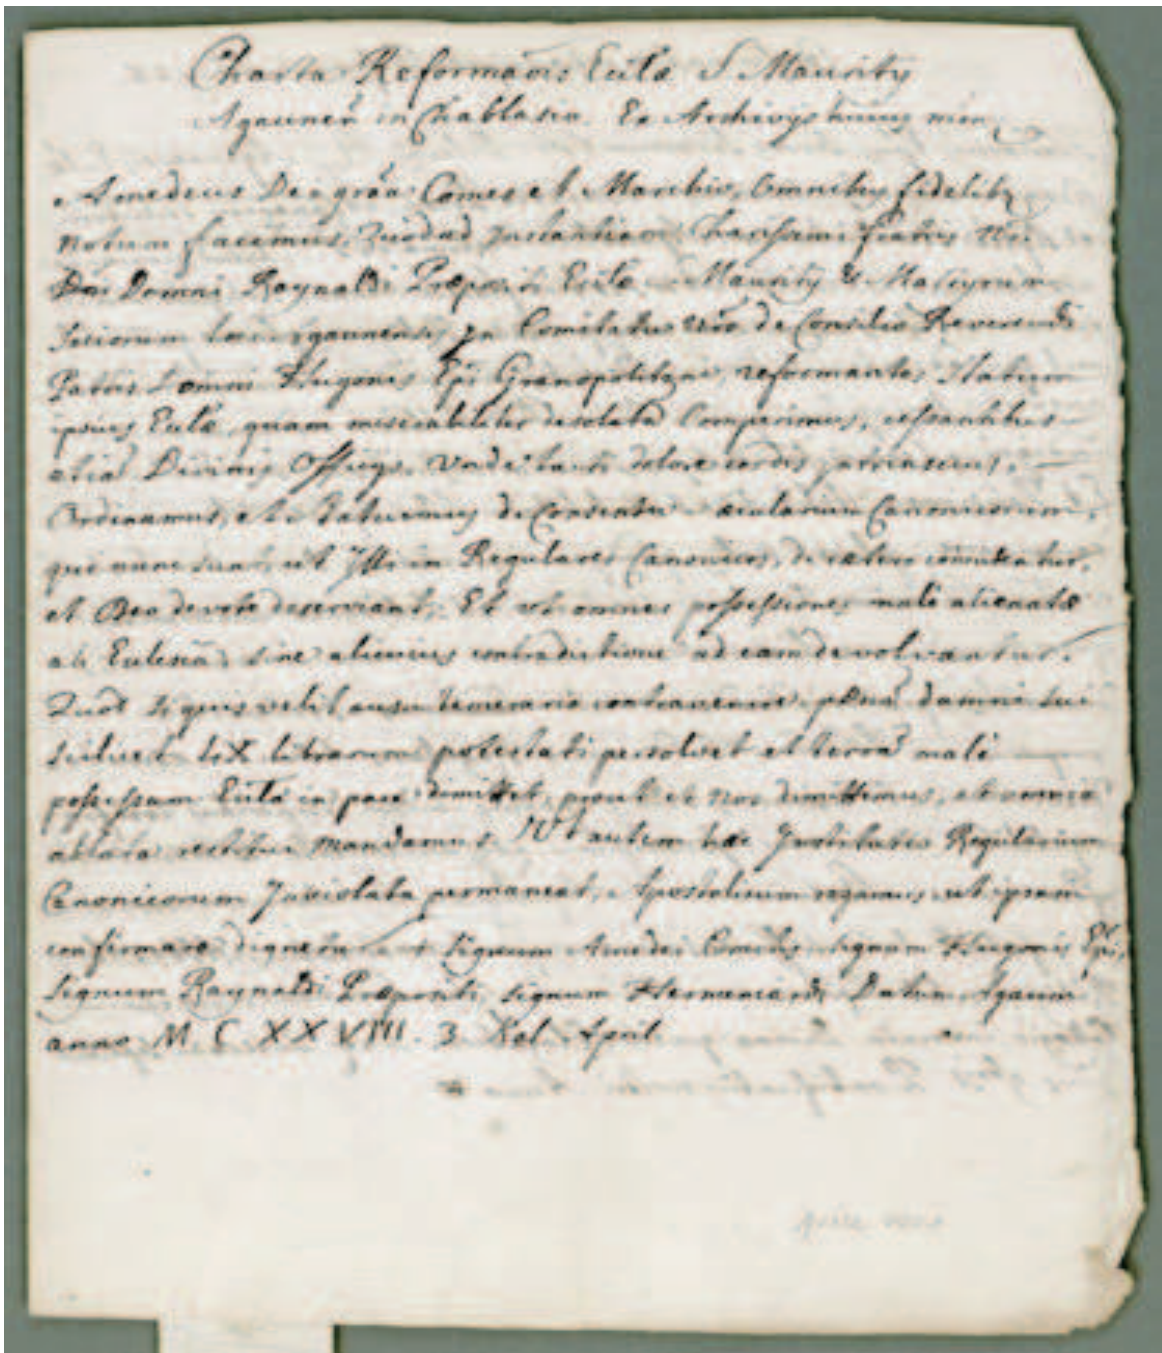 Charta Reformãois Ecclæ S Mauritÿ
Agaunen̄ in Chablasio. Ex Archivÿs huius mon
Amedeus Dei grãa Comes et Marchio, Omnibus fidelib
Notum facimus, Quod ad Instantiam Charissimi fratris Nri
Dni Domni Raynaldi Præpositi Ecclæ S Mauritÿ & Martyrum
Sociorum loci Agaunensis in Comitatu nro de Consilio Reverendi
Patris Domni Hugonis Epi Granopolitani, reformantes Statum
ipsius Ecclæ quam miserabiliter desolatã Comperimus, cessantibus
etiã Divinis Officÿs, Unde tanti dolore cordis
Ordinamus, et Statuimus de Consensu sæcularium Canonicorum,
qui nunc sunt, ut Ipsi in Regulares Canonicos, de cætero
et Deo devote deserviant, Et ut omnes possessiones malè alienatæ
ab Ecclesiã, sine alicuius contradictione ad eam devolvantur.
Quod si quis velit ausu temerario contravenire, pœnã damni sui
scilicet LX librarum potestati persolvet et terrã malè
possessam Ecclæ in pace dimittet, prout et Nos dimittimus, et omnia
ablata restitui mandamus. Ut autem hæc Institutio Regularium
Canonicorum Inviolata permaneat, Apostolicum rogamus ut ipsam
confirmare dignetur Signum Amedei Comitis, signum Hugonis Epi,
Signum Raynaldi Præpositi, signum Datum Agauni
anno M. C. XX VIII. 3 Kal April